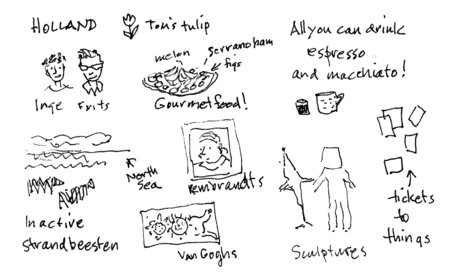 HOLLAND
Tom's tulip
melon
serrano ham
figs
Gourmet food!
All you can drink
espresso
and macchiato!
Inge Frits
North
Sea
Rembrandts
Inactive
strandbeesten
Van Goghs
Sculptures
tickets
to
things